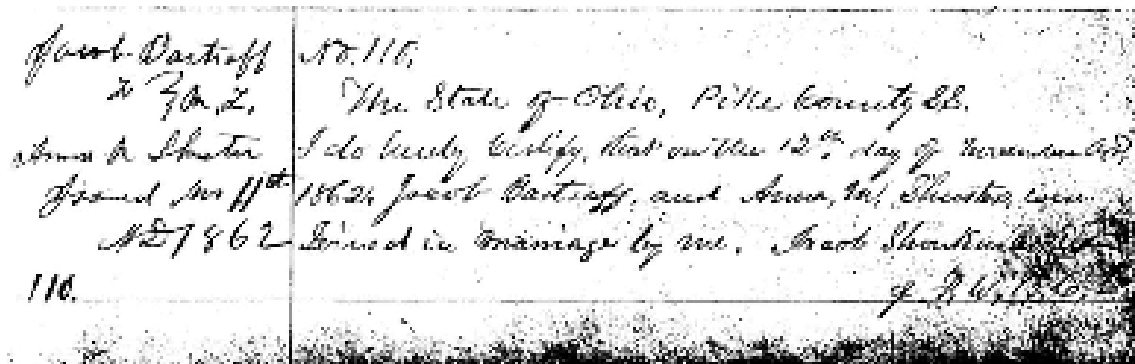 Jacob Dartraff
to } M. L.
Anna M Shuster
Issued Nov 11th
AD 1862
110.
No. 110.
The State of Ohio, Pike County SS.
I do hereby Certify, that on the 12th day of November AD
1862, Jacob Dartraff, and Anna, M, Shuster were
Joined in marriage by me. Jacob